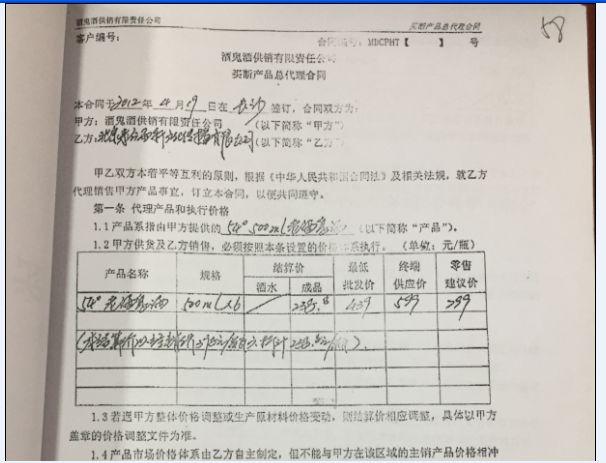 酒鬼酒供销有限责任公司 买断产品总代理合同
58
客户编号: 合同编号: MDCPHT【 】 号
酒鬼酒供销有限责任公司
买断产品总代理合同
本合同于2012年 4 月 9 日在 长沙 签订, 合同双方为:
甲方: 酒鬼酒供销有限责任公司 (以下简称“甲方”)
乙方: 有限公司 (以下简称“乙方”)
甲乙双方本着平等互利的原则, 根据《中华人民共和国合同法》及相关法规, 就乙方
代理销售甲方产品事宜, 订立本合同, 以便共同遵守。
第一条 代理产品和执行价格
1.1 产品系指由甲方提供的 54° 500ml (以下简称“产品”)。
1.2 甲方供货及乙方销售, 必须按照本条设置的价格体系执行。 (单位: 元/瓶)
产品名称 规格 结算价 最低批发价 终端供应价 零售建议价
酒水 成品
54° 500mlX6 / 439 599 799
1.3 若遇甲方整体价格调整或生产原材料价格变动, 则结算价相应调整, 具体以甲方
盖章的价格调整文件为准。
1.4 产品市场价格体系由乙方自主制定, 但不能与甲方在该区域的主销产品价格相冲